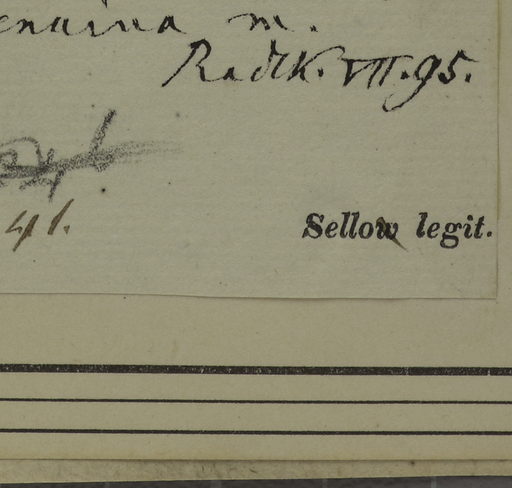 genuina m.
Radlk. VII. 95.
41.
Sellow legit.